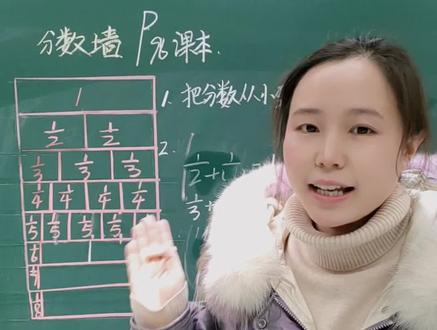 分数墙 P96课本.
1
1/2 1/2
1/3 1/3 1/3
1/4 1/4 1/4 1/4
1/5 1/5 1/5 1/5
1/6
1/7
1/8
1. 把分数从小
2.
1/2+1/
1/3